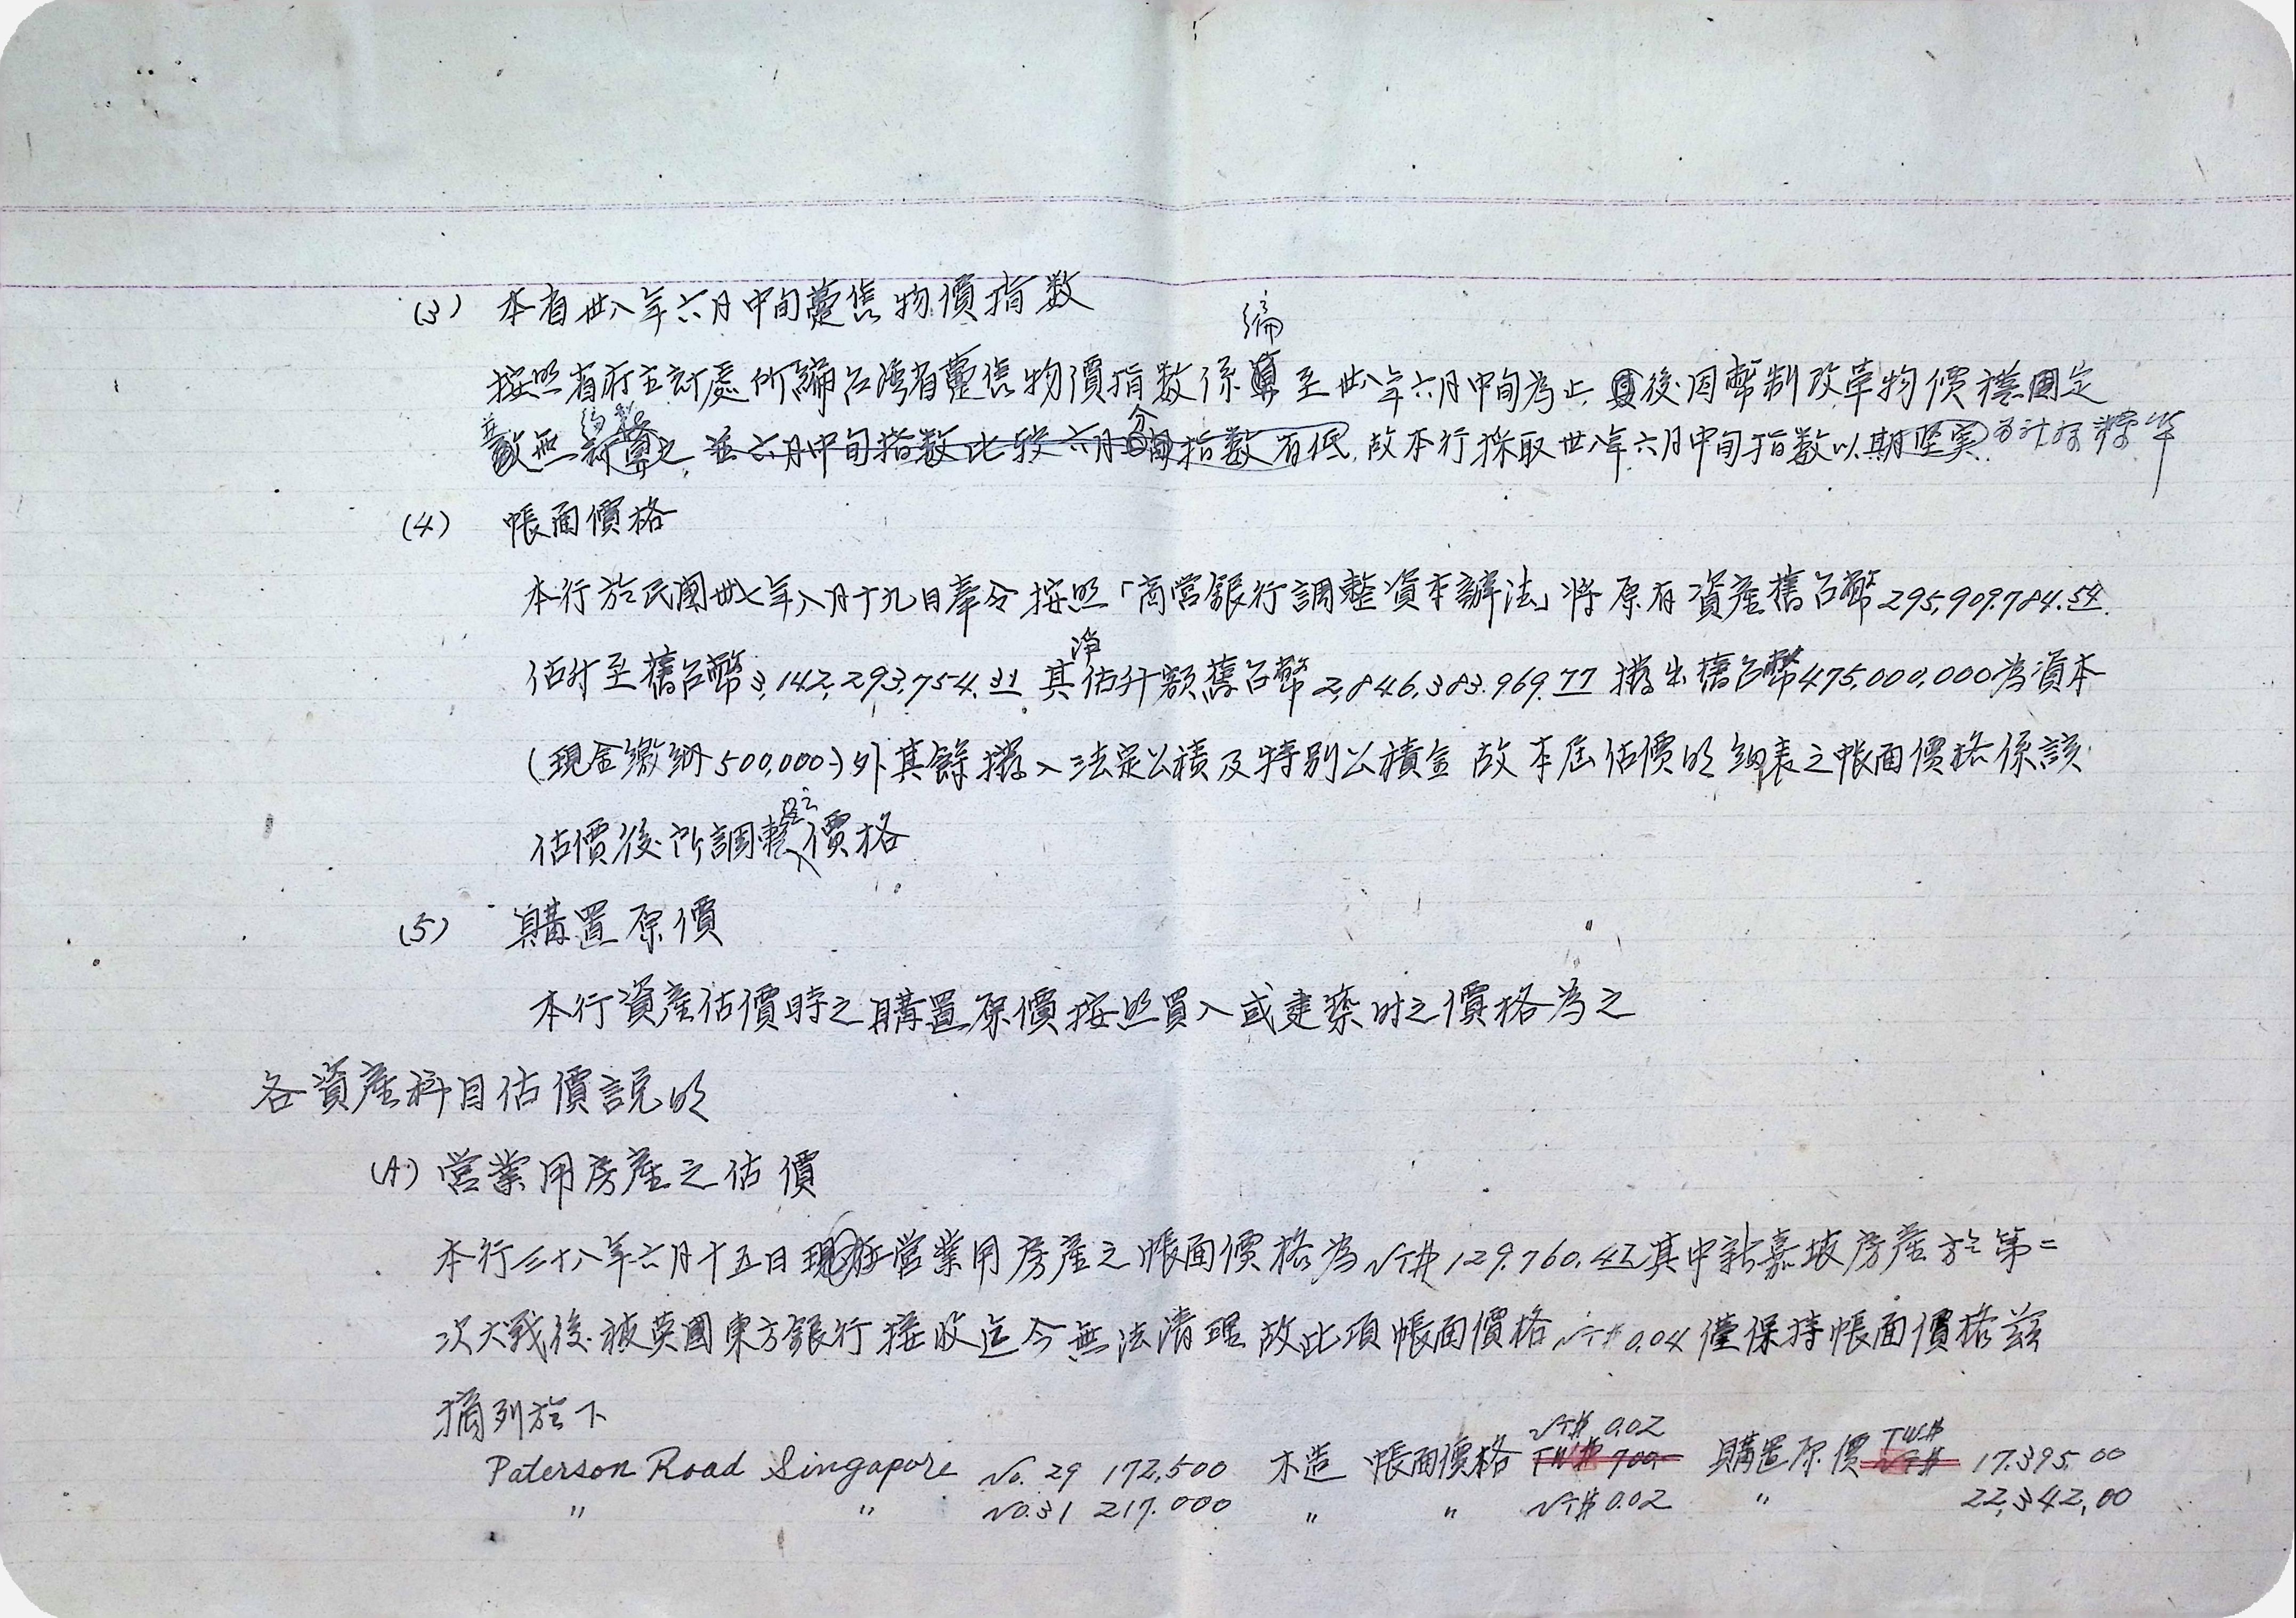 (3) 本省卅八年六月中旬躉售物價指数
編
按照省府主計處所編台灣省躉售物價指数係算至卅八年六月中旬為止 後因幣制改革物價穩固定
編製
故無 算之 並六月中旬指数比較六月份 指数有低 故本行採取卅八年六月中旬指数以期坚実 為計標準
(4) 帳面價格
本行於民國卅七年八月十九日奉令按照「商営銀行調整資本辦法」將原有資產舊台幣295,909,784.54
淨
估升至舊台幣3,142,293,754.31 其估升額舊台幣2,846,383,969.77 撥出舊台幣475,000,000為資本
(現金繳納500,000-)外其餘撥入法定公積及特別公積金 故本屆估價明細表之帳面價格係該
估價後所調整之價格
(5) 購置原價
本行資產估價時之購置原價按照買入或建築时之價格為之
各資產科目估價說明
(A) 営業用房產之估價
本行三十八年六月十五日現在営業用房產之帳面價格為NT$129,760.42其中新嘉坡房產於第二
次大戰後被英國東方銀行接收迄今無法清理故此項帳面價格NT$0.04僅保持帳面價格茲
摘列於下
NT$ 0.02 TW$
Paterson Road Singapore No. 29 172,500 木造 帳面價格 TW$ 700- 購置原價 NT$ 17,395.00
" " No.31 217.000 " " NT$ 0.02 " 22,342.00